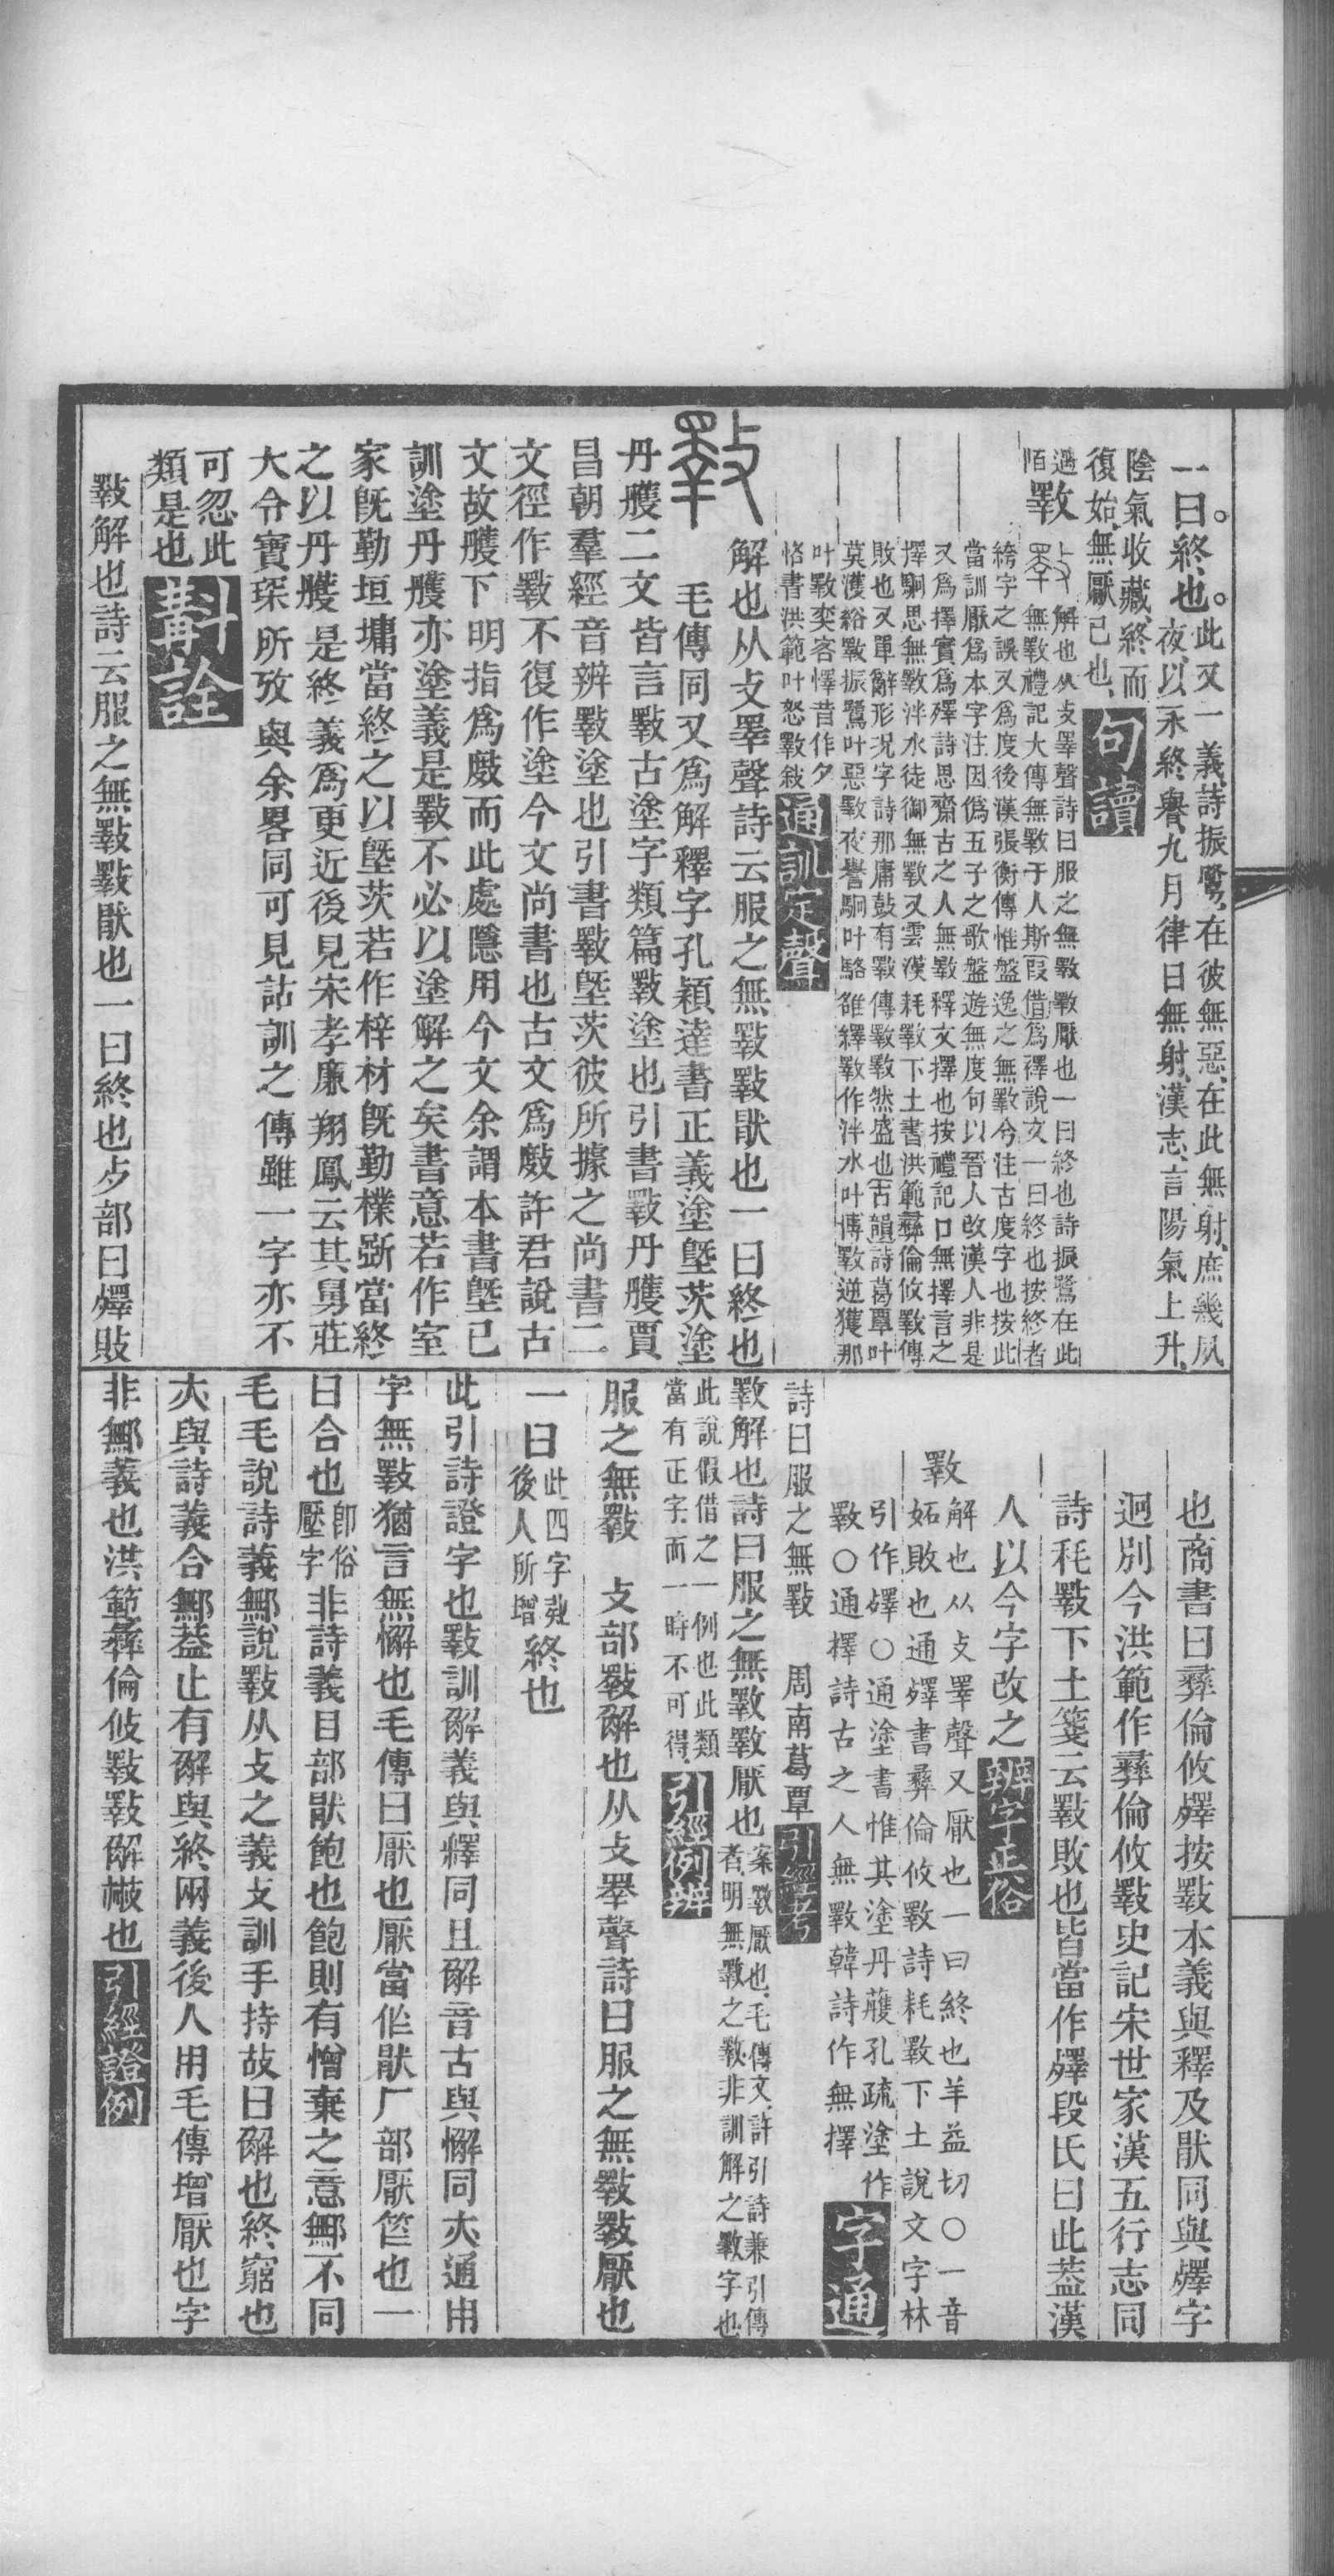 一曰終也。此又一義、詩振鷺、在彼無惡、在此無射、庶幾夙
夜、以永終譽、九月律曰無射、漢志、言陽氣上升、
陰氣收藏、終而
復始、無厭已也、
句讀
遇
陌
斁
解也从攴睪聲詩曰服之無斁斁厭也一曰終也詩振鷺在此
無斁禮記大傳無斁于人斯叚借爲襗說文一曰終也按終者
絝字之誤又爲度後漢張衡傳惟盤逸之無斁今注古度字也按此
當訓厭爲本字注因僞五子之歌盤遊無度句以晉人改漢人非是
又爲擇實爲殬詩思齋古之人無斁釋文擇也按禮記口無擇言之
擇駉思無斁泮水徒御無斁又雲漢耗斁下土書洪範彝倫攸斁傳
敗也又單辭形况字詩那庸鼓有斁傳斁斁然盛也古韻詩葛覃叶
莫濩綌斁振鷺叶惡斁夜譽駉叶駱雒繹斁作泮水叶博斁逆獲那
叶斁奕客懌昔作夕
恪書洪範叶怒斁敍
通訓定聲
解也从攴睪聲詩云服之無斁斁猒也一曰終也
毛傳同又爲解釋字孔穎達書正義塗墍茨塗
丹雘二文皆言斁古塗字類篇斁塗也引書斁丹雘賈
昌朝羣經音辨斁塗也引書斁墍茨彼所據之尚書二
文徑作斁不復作塗今文尚書也古文爲㪔許君說古
文故雘下明指爲㪔而此處隱用今文余謂本書墍已
訓塗丹雘亦塗義是斁不必以塗解之矣書意若作室
家旣勤垣墉當終之以墍茨若作梓材旣勤樸斲當終
之以丹雘是終義爲更近後見宋孝廉翔鳳云其舅莊
大令寶琛所攷與余畧同可見詁訓之傳雖一字亦不
可忍此
類是也
斠詮
斁解也詩云服之無斁斁猒也一曰終也歺部曰殬敗
也商書曰彝倫攸殬按斁本義與釋及猒同與殬字
迥別今洪範作彝倫攸斁史記宋世家漢五行志同
詩秏斁下土箋云斁敗也皆當作殬段氏曰此葢漢
人以今字改之
辨字正俗
斁
解也从攴睪聲又厭也一曰終也羊益切〇一音
妬敗也通殬書彝倫攸斁詩耗斁下土說文字林
引作殬〇通塗書惟其塗丹雘孔疏塗作
斁〇通擇詩古之人無斁韓詩作無擇
字通
詩曰服之無斁　周南葛覃
引經考
斁解也詩曰服之無斁斁厭也
案斁厭也、毛傳文、許引詩兼引傳
者、明無斁之斁、非訓解之斁字也、
此說假借之一例也此類
當有正字、而一時不可得
引經例辨
服之無斁　攴部斁解也从攴睪聲詩曰服之無斁斁厭也
一曰
此四字
後人所增
終也
此引詩證字也斁訓解義與釋同且解音古與懈同亣通用
字無斁猶言無懈也毛傳曰厭也厭當作猒厂部厭笮也一
曰合也
卽俗
壓字
非詩義甘部猒飽也飽則有憎棄之意不同
毛毛說詩義說斁从攴之義攴訓手持故曰解也終窮也
亣與詩義合葢止有解與終网義後人用毛傳增厭也字
非義也洪範彝倫攸斁斁解也
引經證例